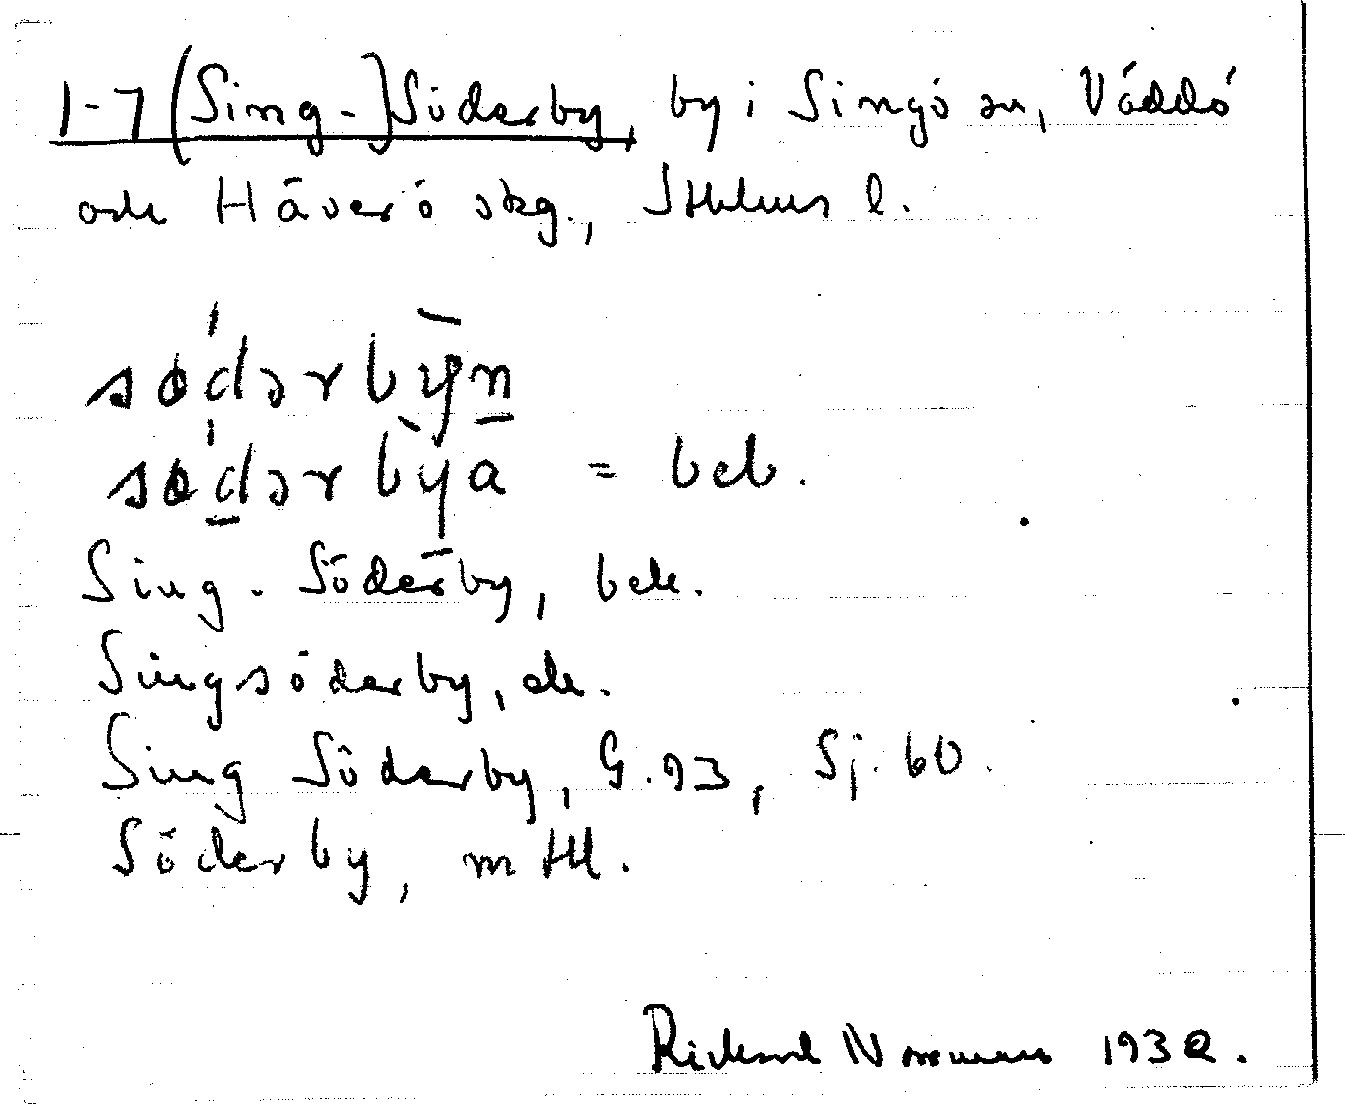 1-7 (Sing-)Söderby, by i Singö sn, Väddö
och Häverö skg., Sthlms l.
södərbȳn
södərbya = beb.
Sing-Söderby, bek.
Singsöderby, ek.
Sing Söderby, G.93, Sj. 60.
Söderby, mtl.
Rickard Norrman 1932.